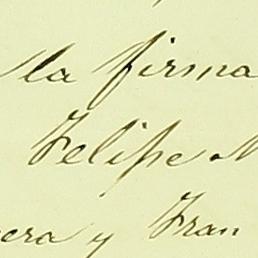 la firma
Felipe
y Fran